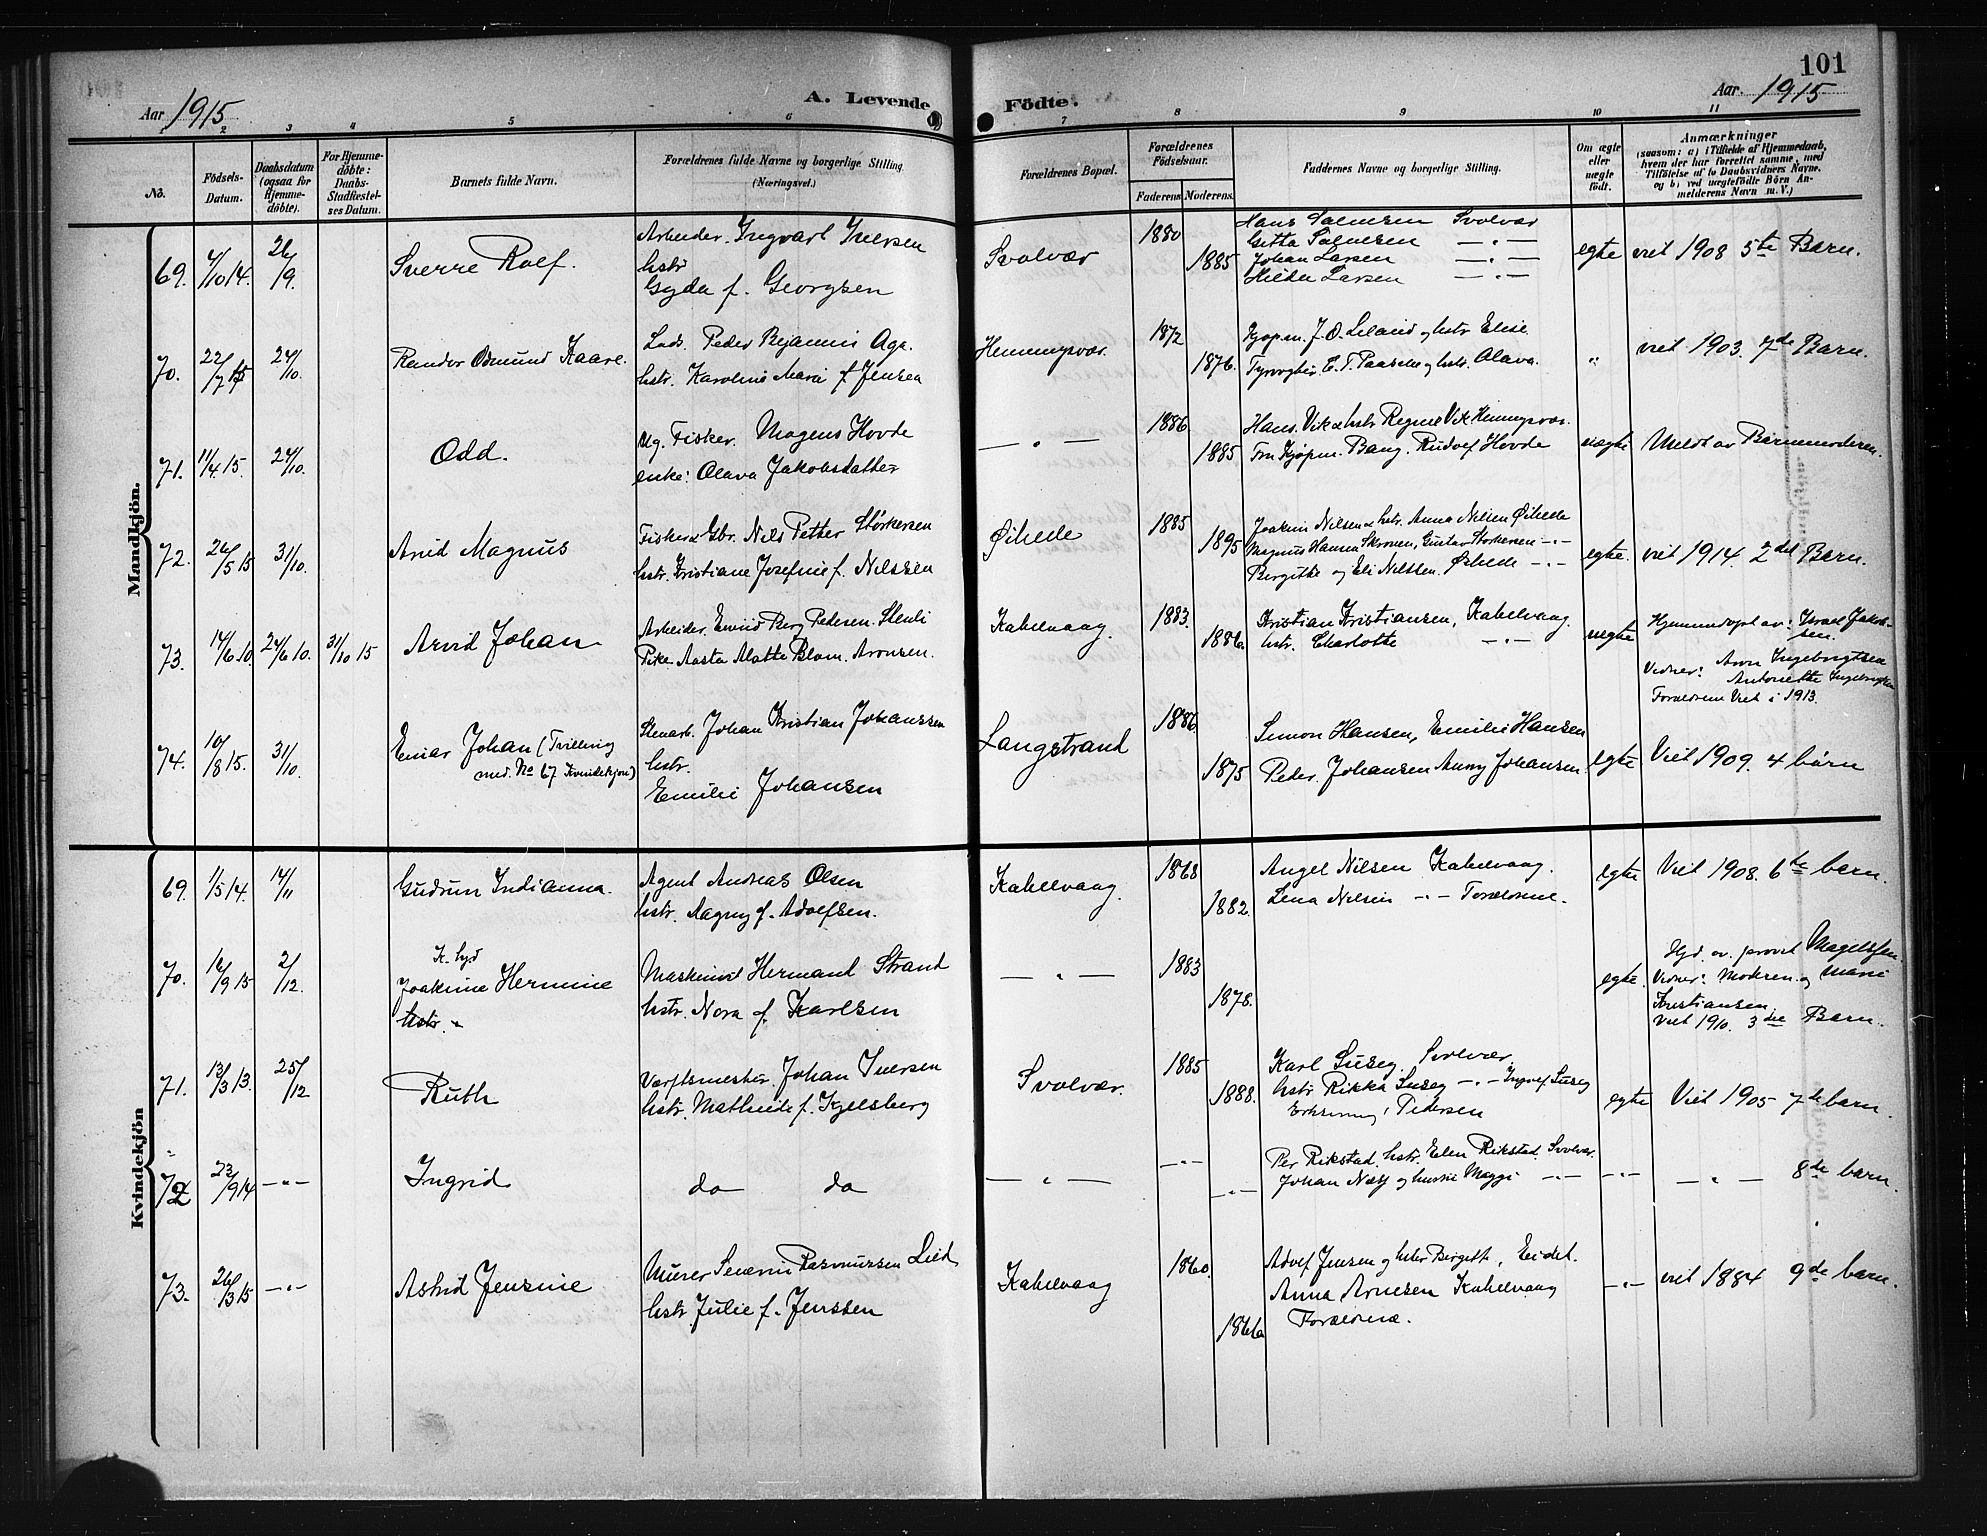 101
Aar 1915
A. Levende
Födte.
Aar. 1915
1 2 3 4 5 6 7 8 9 10 11
No.
Födsels-Datum.
Daabsdatum (ogsaa for Hjemme-döbte).
For Hjemme-döbte: Daabs-Stadfæstel-ses Datum.
Barnets fulde Navn.
Forældrenes fulde Navne og borgerlige Stilling (Næringsvei.)
Forældrenes Bopæl.
Forældrenes Födselsaar.
Faderens Moderens.
Faddernes Navne og borgerlige Stilling.
Om ægte eller uægte födt.
Anmærkninger
(saasom: a) i Tilfælde af Hjemmedaab, hvem der har forrettet samme, med Tilföielse af to Daabsvidners Navne, og b) ved uægtefödte Börn An-melderens Navn m. V.)
Mandkjön.
69. 4/10 14. 26/9. Sverre Rolf.
Arbeider. Ingvart Iversen
hstr
Gyda f. Georgsen
Svolvær 1880 1885
Hans Salmsen Svolvær
Gitta Salmsen — " —
Johan Larsen — " —
Hilda Larsen — " —
egte viet 1908 5te Barn.
70. 22/7 15 24/10. Randor Osmund Kaare.
Peder Bejamin Aga.
hstr. Karoline Marie f Jensen
Henningsvær. 1872 1876.
Kjøpm. J. O. Leland og hstr Elise
Fyrvogter E. T. Paasche og hstr. Olava.
" viet 1903. 7de Barn.
71. 11/4 15. 24/10. Odd.
Ug. Fisker. Mogens Hovde
enke: Olava Jakobsdatter
— " — 1886 1885
Hans Vik & hstr Regine Vik Henningsvær.
Fru Kjøpm. Bang. Rudolf Hovde
uægte Meldt av Barnemoderen.
72. 26/5 15 31/10. Arvid Magnus
Fisker & Gbr. Nils Petter Størkersen
hstr. Kristiane Josefine f. Nilssen
Øihelle 1885 1895
Joakim Nilsen & hstr. Anna Nilsen Øihelle
Magnus Hansen Skroven, Gustav Storkersen — " —
Bergitte og Eli Nilssen. Øihelle — " —
egte. viet 1914. 2det Barn.
73. 14/6 10. 24/6 10. 31/10 15 Arvid Johan
Arbeider. Eivind Berg Pedersen. Stenli
Pike. Aasta Alette Blom. Aronsen.
Kabelvaag. 1883. 1886.
Kristian Kristiansen, Kabelvaag.
hstr. Charlotte — " —
uegte
Hjemmedøpt av: Israel Jakob-
sen.
Vidner: Aron Ingebrigtsen
Antonette Ingebrigtsen
Forældrene Viet i 1913.
74. 10/8 15. 31/10. Einar Johan (Tvilling
med. No 67 Kvindekjøn)
Stenarb. Johan Kristian Johanssen
hstr.
Emilie Johansen
Langstrand 1886 1875
Simon Hansen, Emilie Hansen
Peder. Johansen Anny Johansen.
egte Viet 1909. 4 børn
Kvindekjön
69. 1/5 14. 14/11 Gudrun Indianna.
Agent Andreas Olsen
hstr. Aagny f. Adolfsen.
Kabelvaag. 1868 1882.
Angel Nilsen Kabelvaag.
Lena Nilsen — " — Forældrene.
egte Viet 1908. 6te barn.
70. 16/9 15 2/12.
Joakine Hermine
hstr. "
Maskinist Hermand Strand
hstr. Nora f. Karlsen
— " — 1883 1878.
egte.
Hjd. av. provst Magelssen.
Vidner: Moderen. og Marie
Kristiansen.
Viet 1910. 3die Barn.
71. 13/3 13. 25/12 Ruth
Værftsmester. Johan Iversen
hstr. Mathilde f. Kjelsberg
Svolvær. 1885 1888.
Karl Suseg, Svolvær.
hstr Rikka Suseg — " — Ingolf Suseg
Pedersen
egte Viet 1905 7de barn.
72 23/9 14 — " — Ingrid
do do
— " — — " — — " —
Per Rikstad. hstr. Elen Rikstad. Svolvær.
Johan Næss og hustru Maggi — " —
— " — — " — 8de barn.
73. 26/3 15 — " — Astrid Jensine
Murer Severin Rasmussen Lied
hstr Julie f. Jenssen
Kabelvaag 1860. 1866
Adolf Jensen og hstr Birgitt, Eidet.
Anna Arnesen Kabelvaag
Forældrene.
— " — viet 1884 9de barn.